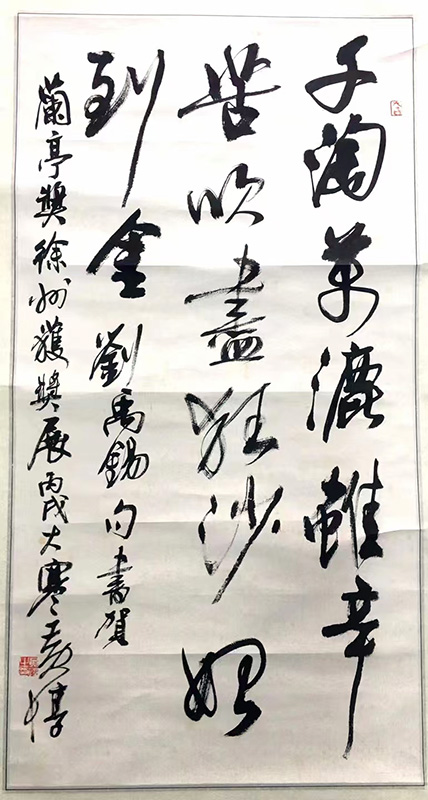 千淘萬漉雖辛
苦吹盡狂沙始
到金 劉禹錫句書賀
蘭亭獎徐州獲獎展丙戌大寒黃惇